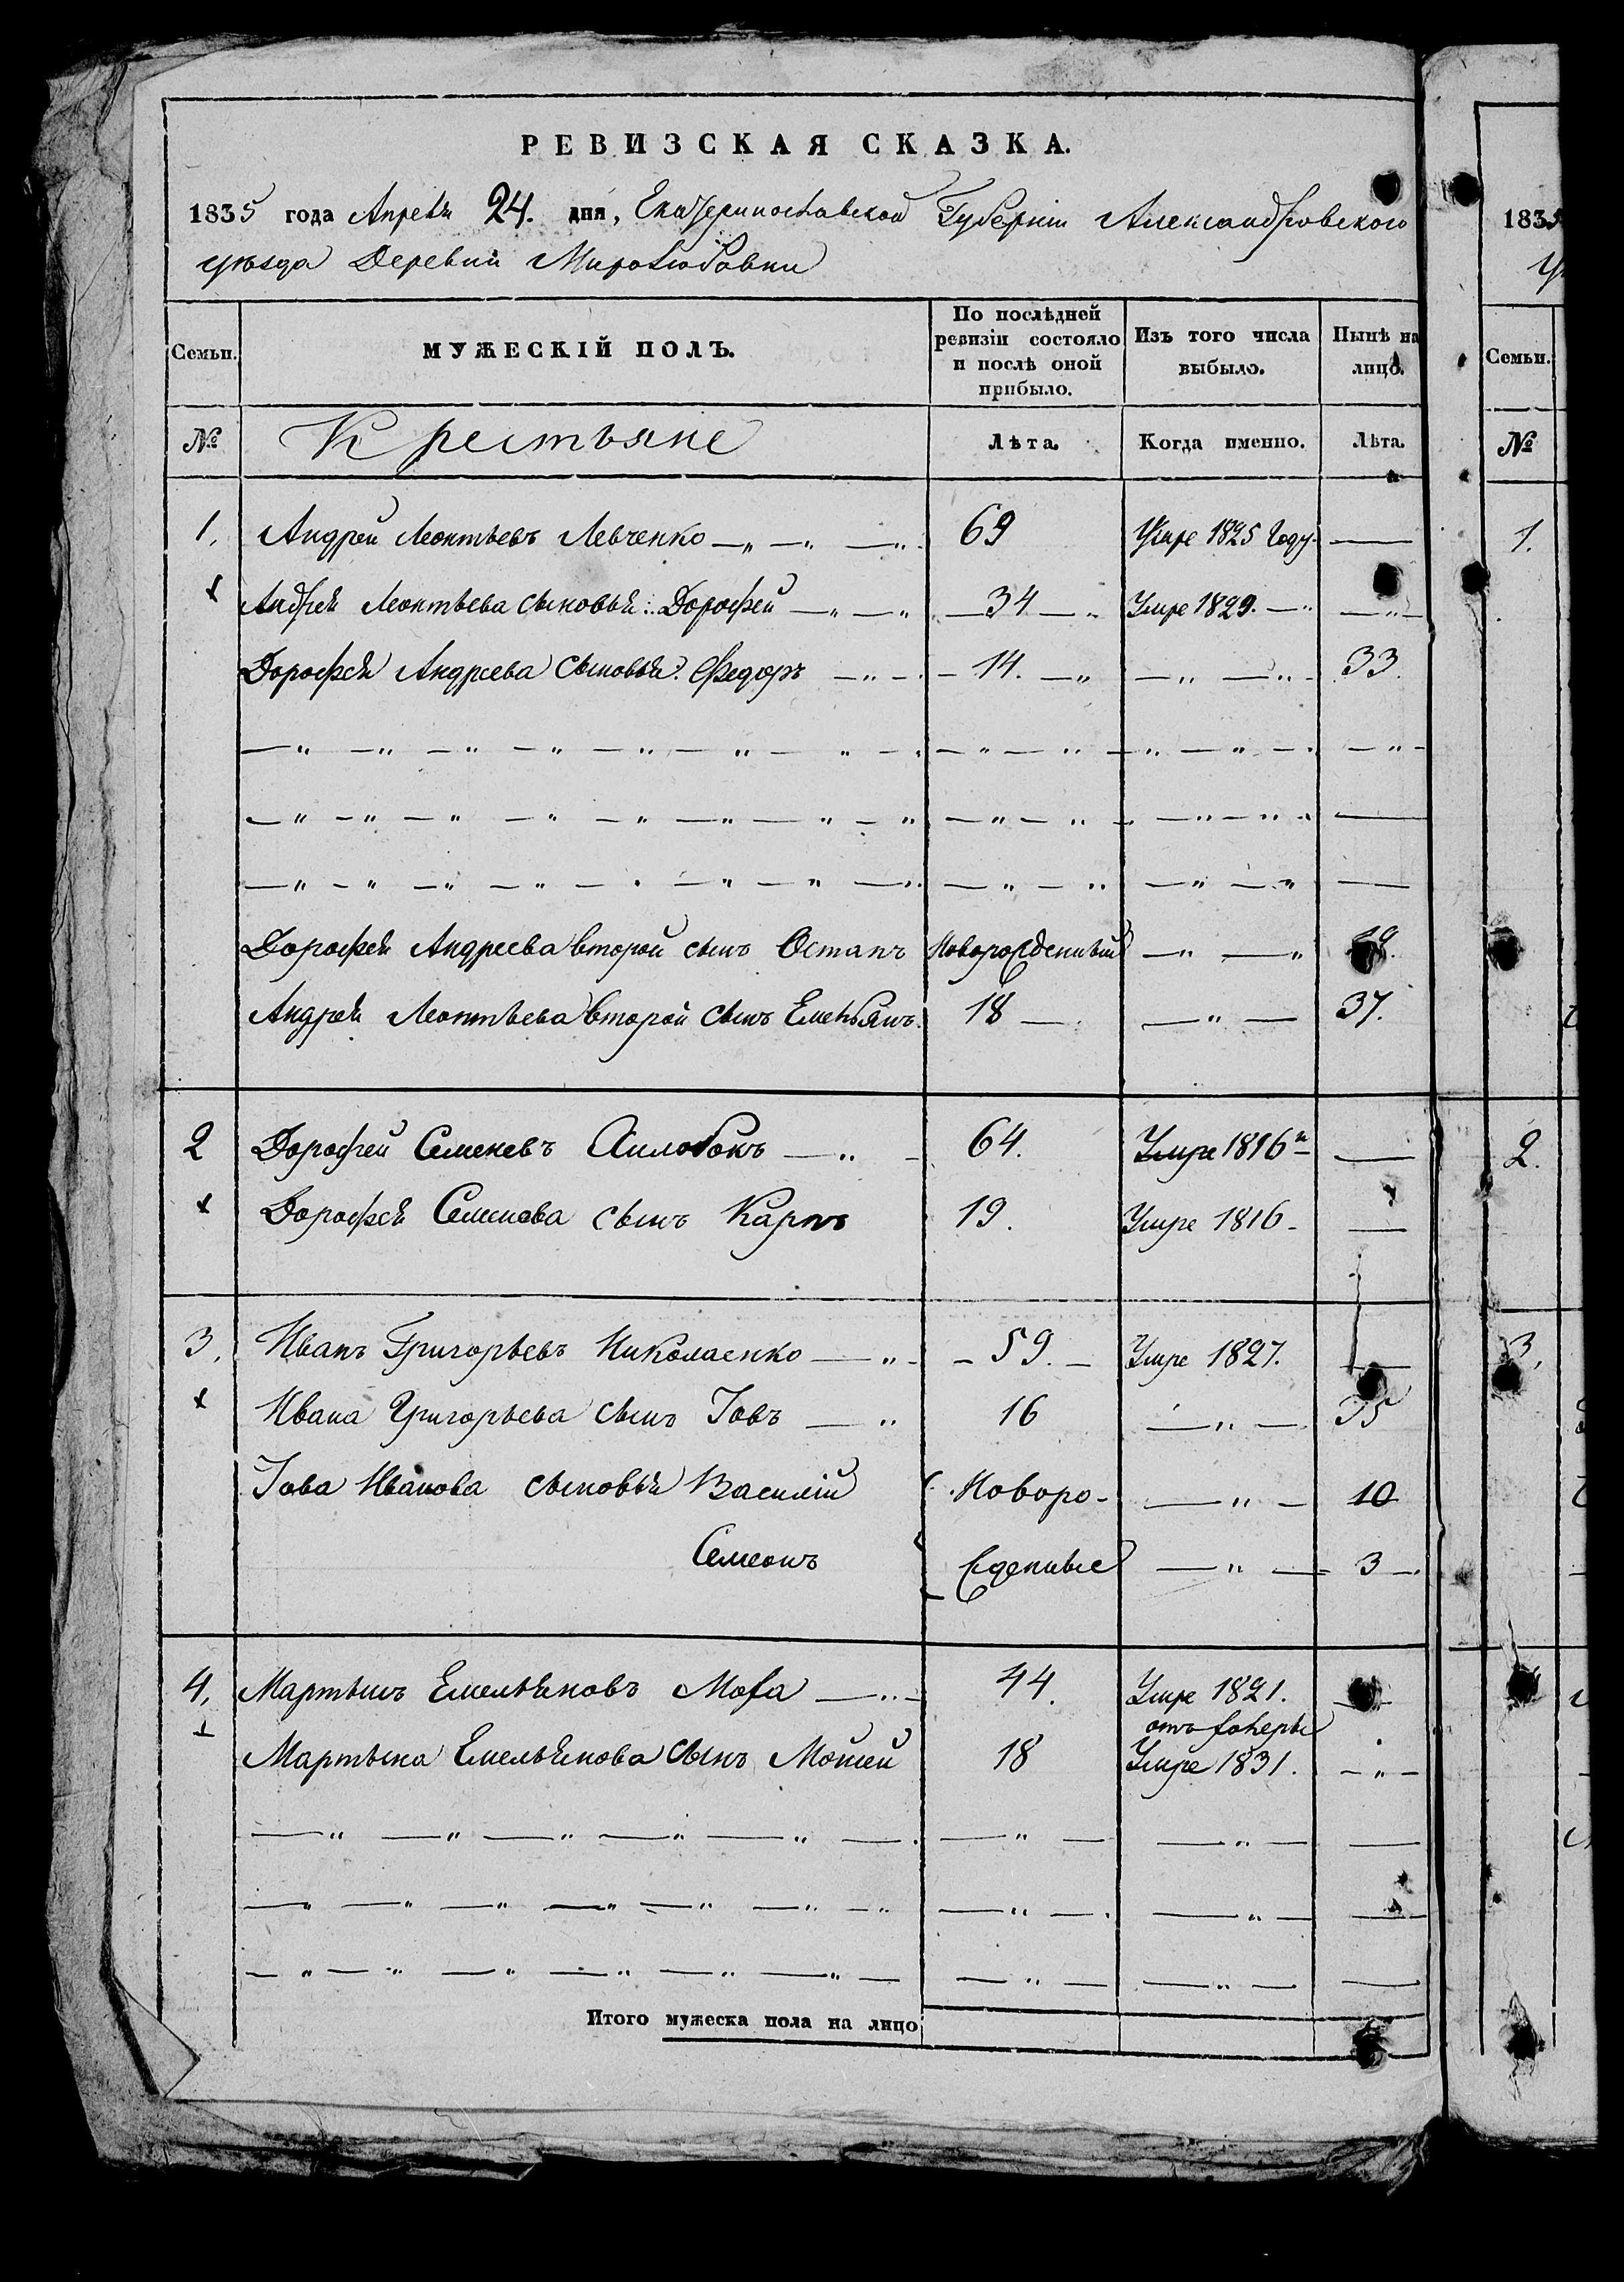 РЕВИЗСКАЯ СКАЗКА.
1835 года Апреля 24. дня, Екатеринославской Губернии Александровского
уѣзда Деревни Миролюбовки
Семьи. МУЖЕСКІЙ ПОЛЪ. По послѣдней ревизіи состояло и послѣ оной прибыло. Изъ того числа выбыло. Нынѣ на лицо.
№ Крестьяне Лѣта. Когда именно. Лѣта.
1. Андрей Леонтьевъ Левченко 69 Умре 1825 Году
Андрея Леонтьева сыновья: Дорофей 34 Умре 1829.
Дорофея Андреева сыновья: Федоръ 14. 33.
Дорофея Андреева второй сынъ Остапъ Новорожденный
Андрея Леонтьева второй сынъ Емельянъ. 18 37.
2 Дорофей Семеневъ 64. Умре 1816
Дорофея Семенова сынъ Карпъ 19. Умре 1816
3. Иванъ Григорьевъ Николаенко 59. Умре 1827.
Ивана Григорьева сынъ Іовъ 16 35
Іова Иванова сыновья Василій Новоро- 10
Семеонъ жденные 3
4. Мартынъ Емельяновъ 44. Умре 1821.
отъ холеры
Мартына Емельянова сынъ Мойсей 18 Умре 1831.
Итого мужеска пола на лицо
1835
Семьи.
№
1.
2.
3.